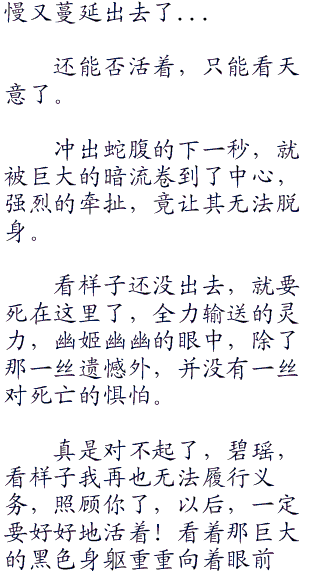 慢又蔓延出去了...
还能否活着，只能看天
意了。
冲出蛇腹的下一秒，就
被巨大的暗流卷到了中心，
强烈的牵扯，竟让其无法脱
身。
看样子还没出去，就要
死在这里了，全力输送的灵
力，幽姬幽幽的眼中，除了
那一丝遗憾外，并没有一丝
对死亡的惧怕。
真是对不起了，碧瑶，
看样子我再也无法履行义
务，照顾你了，以后，一定
要好好地活着！看着那巨大
的黑色身躯重重向着眼前